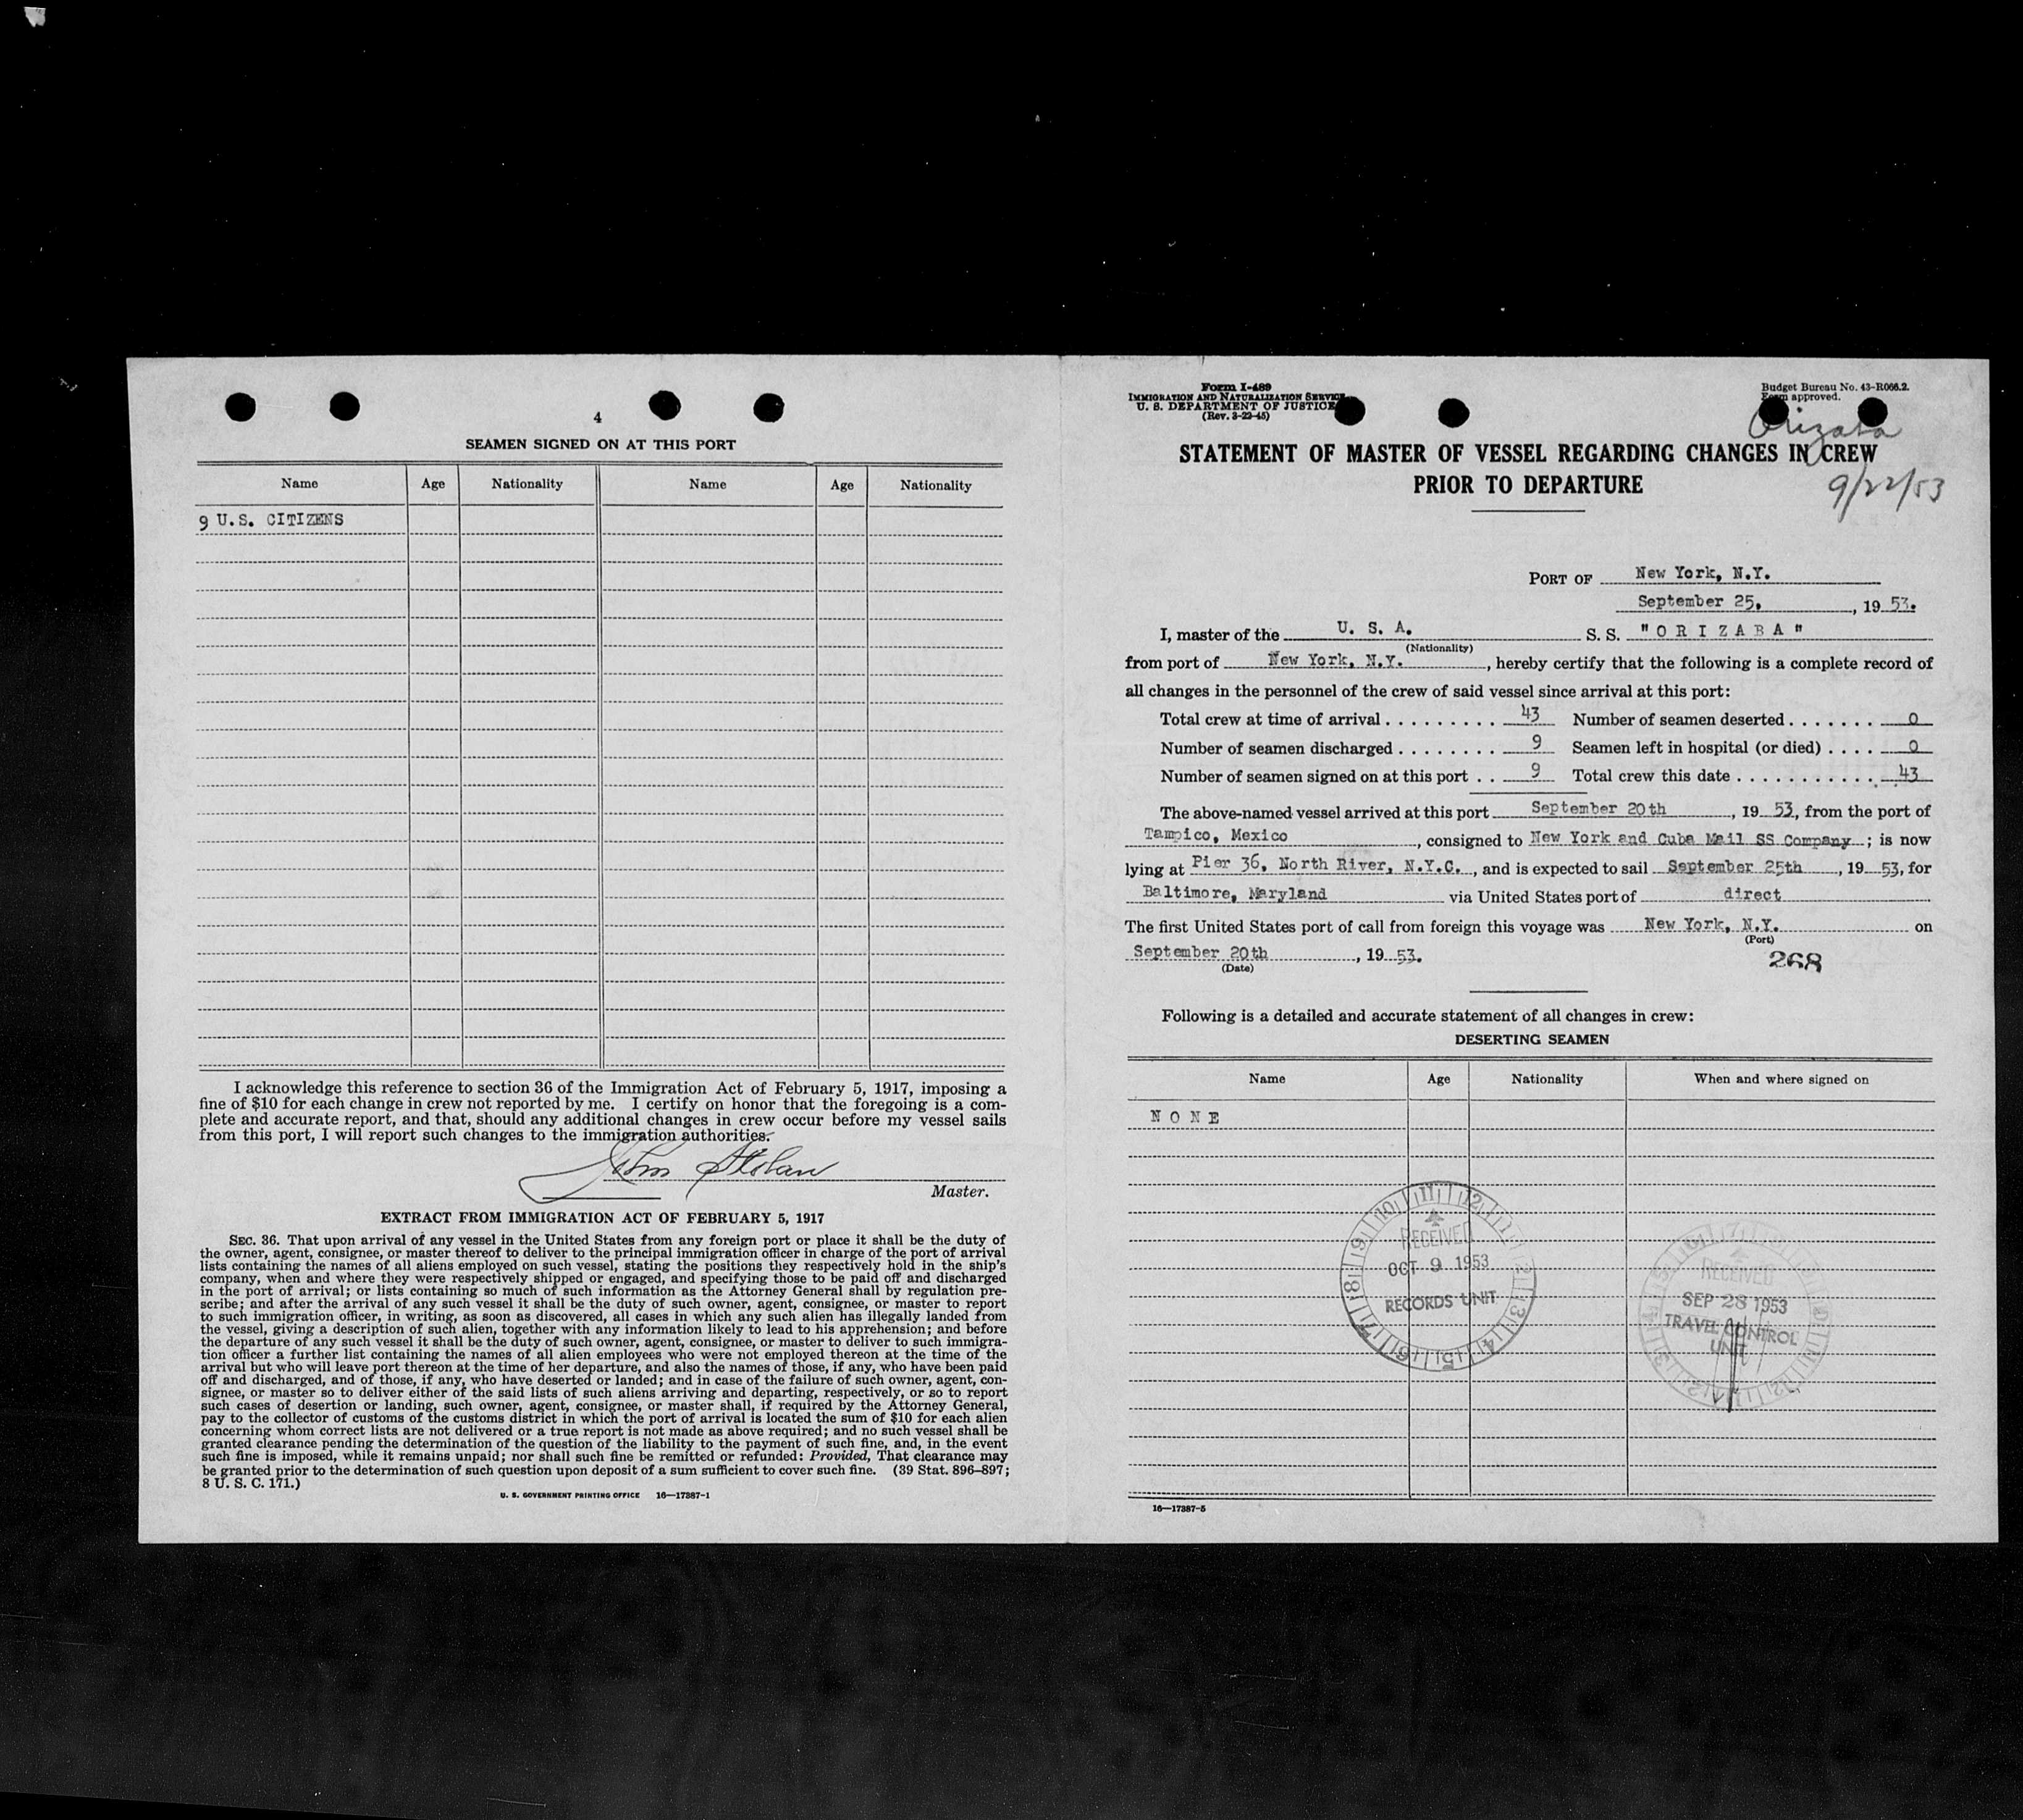 4
SEAMEN SIGNED ON AT THIS PORT
Name Age Nationality Name Age Nationality
9 U.S. CITIZENS
I acknowledge this reference to section 36 of the Immigration Act of February 5, 1917, imposing a
fine of $10 for each change in crew not reported by me. I certify on honor that the foregoing is a com-
plete and accurate report, and that, should any additional changes in crew occur before my vessel sails
from this port, I will report such changes to the immigration authorities.
John
Master.
EXTRACT FROM IMMIGRATION ACT OF FEBRUARY 5, 1917
SEC. 36. That upon arrival of any vessel in the United States from any foreign port or place it shall be the duty of
the owner, agent, consignee, or master thereof to deliver to the principal immigration officer in charge of the port of arrival
lists containing the names of all aliens employed on such vessel, stating the positions they respectively hold in the ship's
company, when and where they were respectively shipped or engaged, and specifying those to be paid off and discharged
in the port of arrival; or lists containing so much of such information as the Attorney General shall by regulation pre-
scribe; and after the arrival of any such vessel it shall be the duty of such owner, agent, consignee, or master to report
to such immigration officer, in writing, as soon as discovered, all cases in which any such alien has illegally landed from
the vessel, giving a description of such alien, together with any information likely to lead to his apprehension; and before
the departure of any such vessel it shall be the duty of such owner, agent, consignee, or master to deliver to such immigra-
tion officer a further list containing the names of all alien employees who were not employed thereon at the time of the
arrival but who will leave port thereon at the time of her departure, and also the names of those, if any, who have been paid
off and discharged, and of those, if any, who have deserted or landed; and in case of the failure of such owner, agent, con-
signee, or master so to deliver either of the said lists of such aliens arriving and departing, respectively, or so to report
such cases of desertion or landing, such owner, agent, consignee, or master shall, if required by the Attorney General,
pay to the collector of customs of the customs district in which the port of arrival is located the sum of $10 for each alien
concerning whom correct lists are not delivered or a true report is not made as above required; and no such vessel shall be
granted clearance pending the determination of the question of the liability to the payment of such fine, and, in the event
such fine is imposed, while it remains unpaid; nor shall such fine be remitted or refunded: Provided, That clearance may
be granted prior to the determination of such question upon deposit of a sum sufficient to cover such fine. (39 Stat. 896–897;
8 U. S. C. 171.)
U. S. GOVERNMENT PRINTING OFFICE 16—17387-1
Form I-489
IMMIGRATION AND NATURALIZATION SERVICE
U. S. DEPARTMENT OF JUSTICE
(Rev. 3-22-45)
Budget Bureau No. 43-R066.2.
Form approved.
Orizaba
STATEMENT OF MASTER OF VESSEL REGARDING CHANGES IN CREW
PRIOR TO DEPARTURE
9/22/53
PORT OF New York, N.Y.
September 25, , 19 53.
I, master of the U. S. A. S. S. "O R I Z A B A"
(Nationality)
from port of New York, N.Y. , hereby certify that the following is a complete record of
all changes in the personnel of the crew of said vessel since arrival at this port:
Total crew at time of arrival . . . . . . . . . 43 Number of seamen deserted . . . . . . . 0
Number of seamen discharged . . . . . . . . 9 Seamen left in hospital (or died) . . . . 0
Number of seamen signed on at this port . . 9 Total crew this date . . . . . . . . . . . 43
The above-named vessel arrived at this port September 20th , 19 53, from the port of
Tampico, Mexico , consigned to New York and Cuba Mail SS Company ; is now
lying at Pier 36, North River, N.Y.C. , and is expected to sail September 25th , 19 53, for
Baltimore, Maryland via United States port of direct
The first United States port of call from foreign this voyage was New York, N.Y. on
(Port)
September 20th , 19 53.
(Date)
268
Following is a detailed and accurate statement of all changes in crew:
DESERTING SEAMEN
Name Age Nationality When and where signed on
N O N E
RECEIVED
OCT 9 1953
RECORDS UNIT
RECEIVED
SEP 28 1953
TRAVEL CONTROL
UNIT
16—17387-5